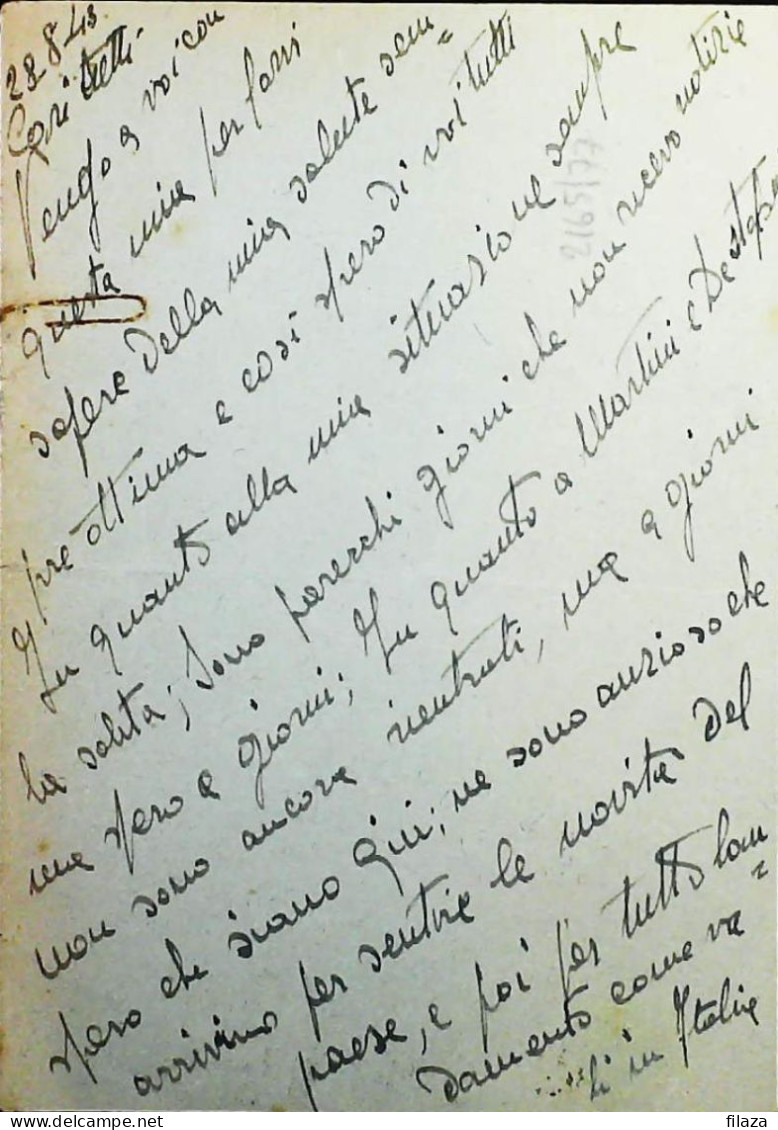 28-8-43
Cari tutti
Vengo a voi con
questa mia per farvi
sapere della mia salute sem=
pre ottima e così spero di voi tutti
In quanto alla mia situazione sempre
la solita; Sono parecchi giorni che non ricevo notizie
ma spero a giorni; In quanto a Martini e De Stefan
non sono ancora rientrati, ma a giorni
spero che siano qui; ne sono anzioso che
arrivino per sentire le novità del
paese, e poi per tutto l'an
damento come va
lì in Italia
2165/77
delcampe.net
filaza